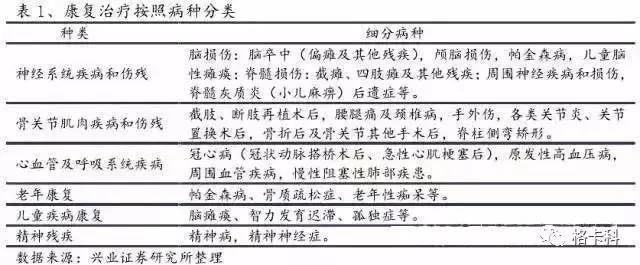 表1、康复治疗按照病种分类
种类 细分病种
脑损伤：脑卒中（偏瘫及其他残疾），颅脑损伤，帕金森病，儿童脑
神经系统疾病和伤残 性瘫痪；脊髓损伤：截瘫、四肢瘫及其他残疾；周围神经疾病和损伤，
脊髓灰质炎（小儿麻痹）后遗症等。
截肢、断肢再植术后，腰腿痛及颈椎病，手外伤，各类关节炎、关节
骨关节肌肉疾病和伤残 置换术后，骨折后及骨关节其他手术后，脊柱侧弯矫形。
冠心病（冠状动脉搭桥术后、急性心肌梗塞后），原发性高血压病，
心血管及呼吸系统疾病 周围血管疾病，慢性阻塞性肺部疾患。
老年康复 帕金森病、骨质疏松症、老年性痴呆等。
儿童疾病康复 脑瘫痪、智力发育迟滞、孤独症等。
精神残疾 精神病，精神神经症。
数据来源：兴业证券研究所整理
格卡科